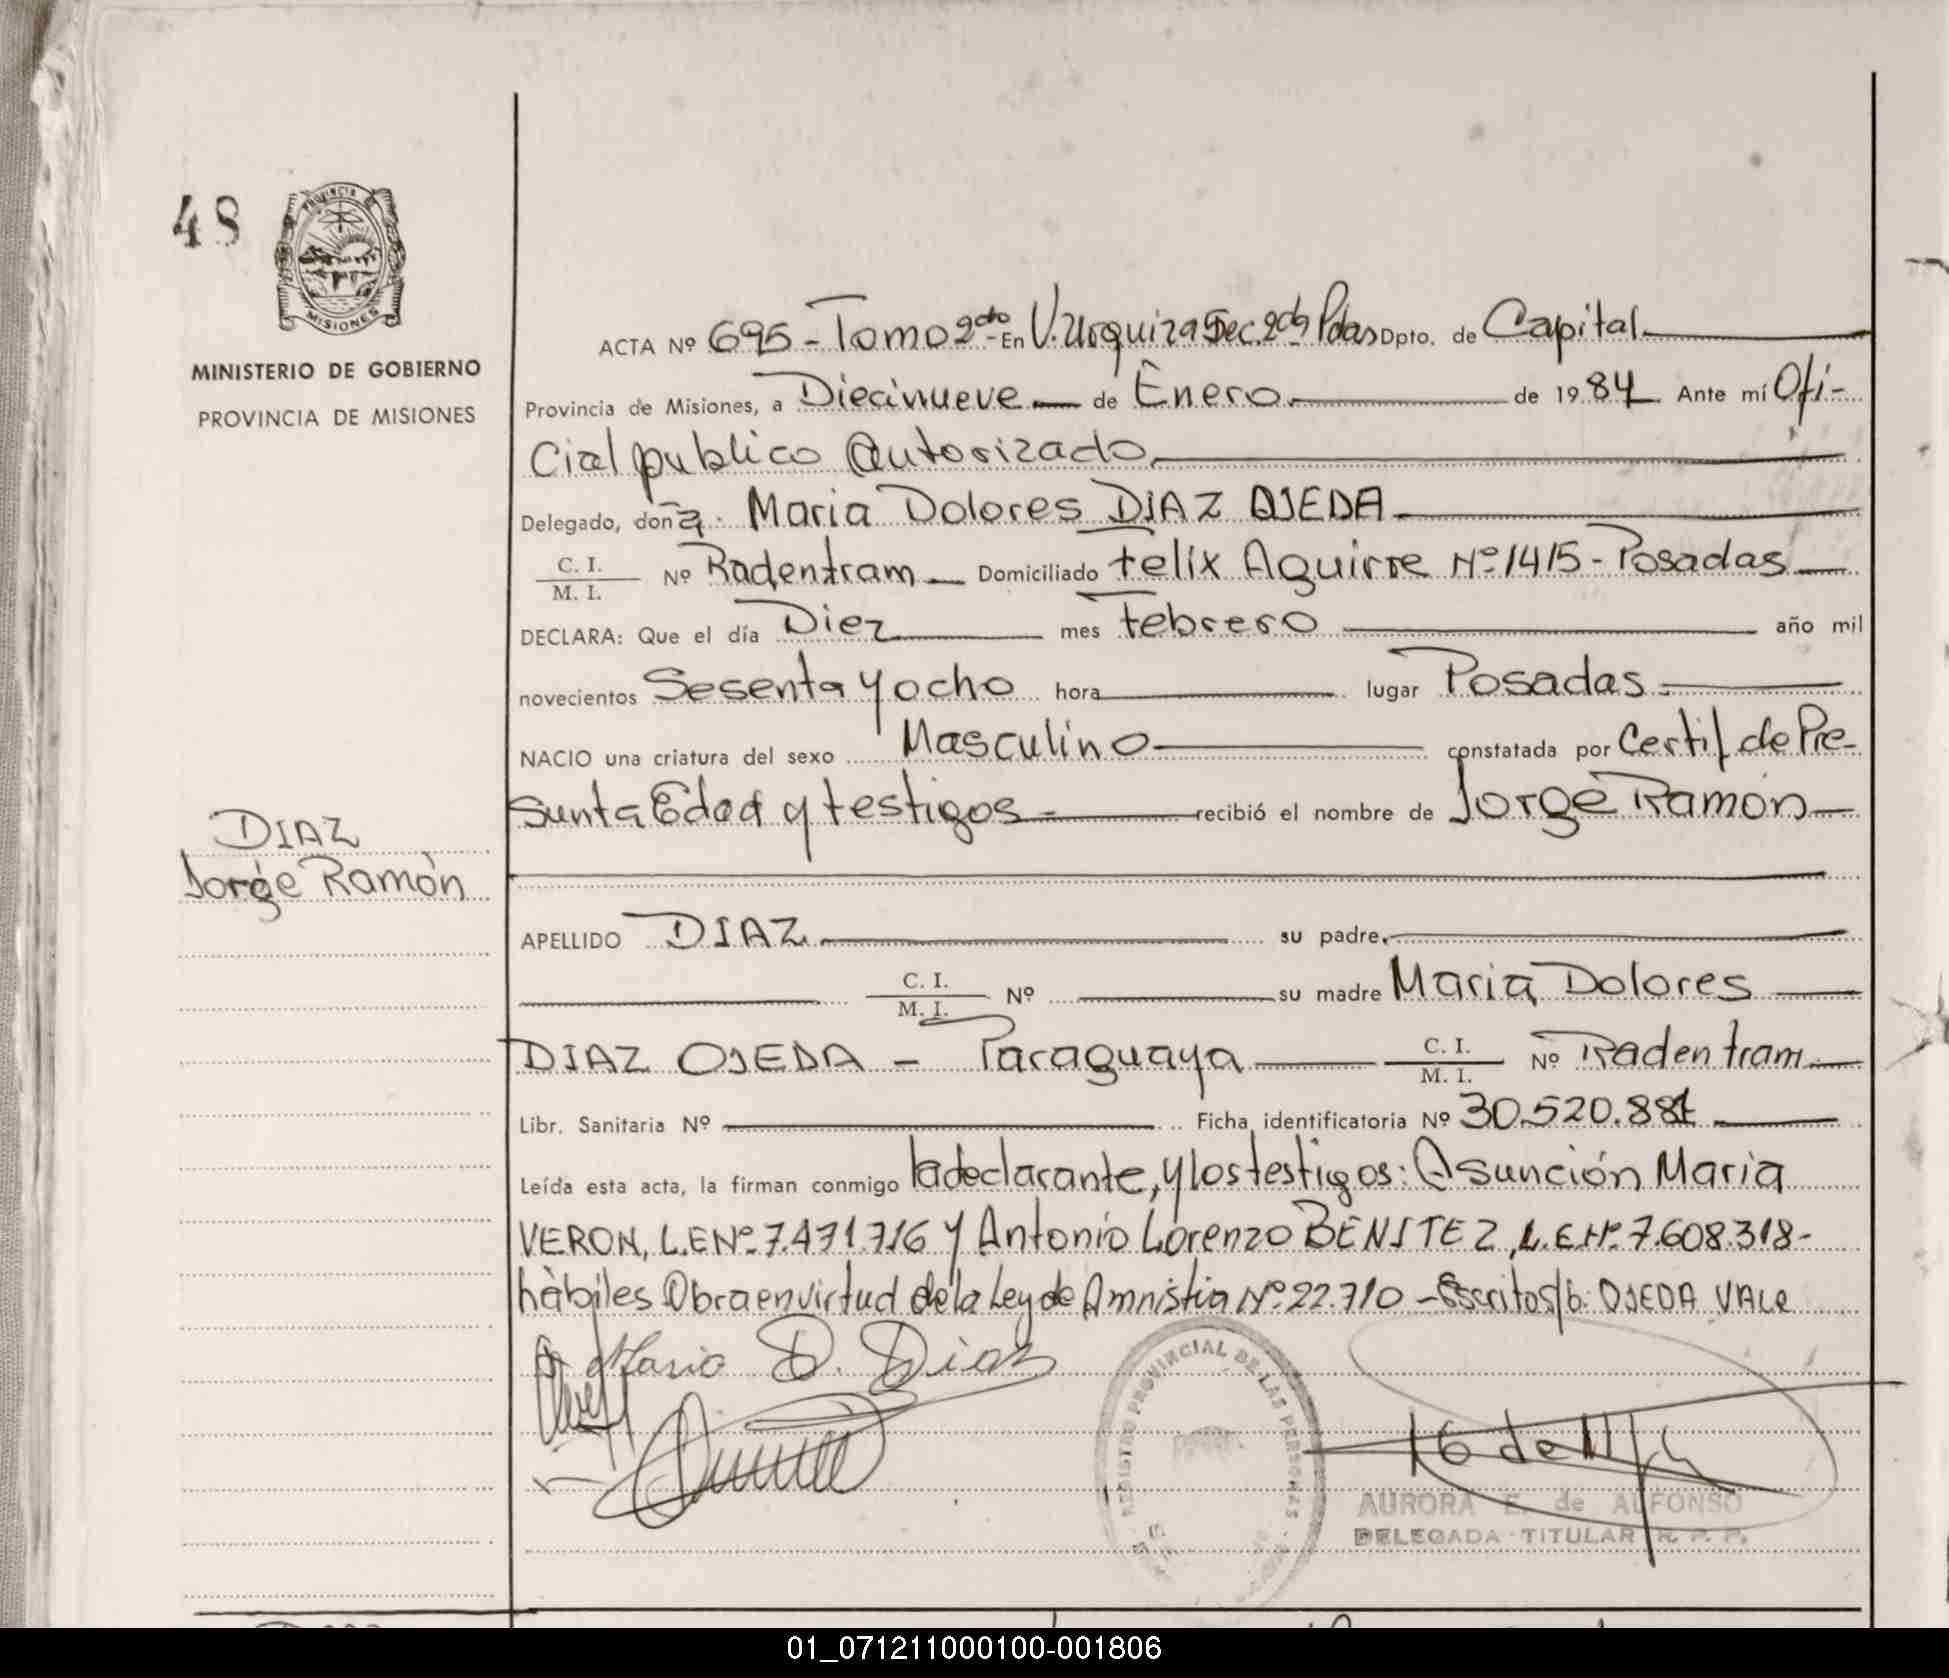 48
PROVINCIA
MISIONES
MINISTERIO DE GOBIERNO
PROVINCIA DE MISIONES
ACTA Nº 695 - Tomo 2do - En V. Urquiza Sec. 2da Pdas Dpto. de Capital
Provincia de Misiones, a Diecinueve de Enero de 1984 Ante mí Ofi-
cial publico autorizado
Delegado, donã Maria Dolores DIAZ OJEDA
C. I.
M. I. Nº Radentram Domiciliado Felix Aguirre Nº 1415 - Posadas
DECLARA: Que el día Diez mes Febrero año mil
novecientos Sesenta y ocho hora lugar Posadas
NACIO una criatura del sexo Masculino constatada por Certif de Pre-
sunta Edad y testigos recibió el nombre de Jorge Ramón
DIAZ
Jorge Ramón
APELLIDO DIAZ su padre
C. I.
M. I. Nº su madre Maria Dolores
DIAZ OJEDA - Paraguaya C. I.
M. I. Nº Radentram
Libr. Sanitaria Nº Ficha identificatoria Nº 30.520.881
Leída esta acta, la firman conmigo la declarante, y los testigos: Asunción Maria
VERON, L.E Nº 7.471.716 y Antonio Lorenzo BENITEZ, L.E.Nº. 7.608.318-
hàbiles Obra en virtud de la Ley de Amnistia Nº 22.710 - Escrito s/b: OJEDA VALE
Maria D. Diaz
REGISTRO PROVINCIAL DE LAS PERSONAS
AURORA E. de ALFONSO
DELEGADA TITULAR R. P. P.
01_071211000100-001806